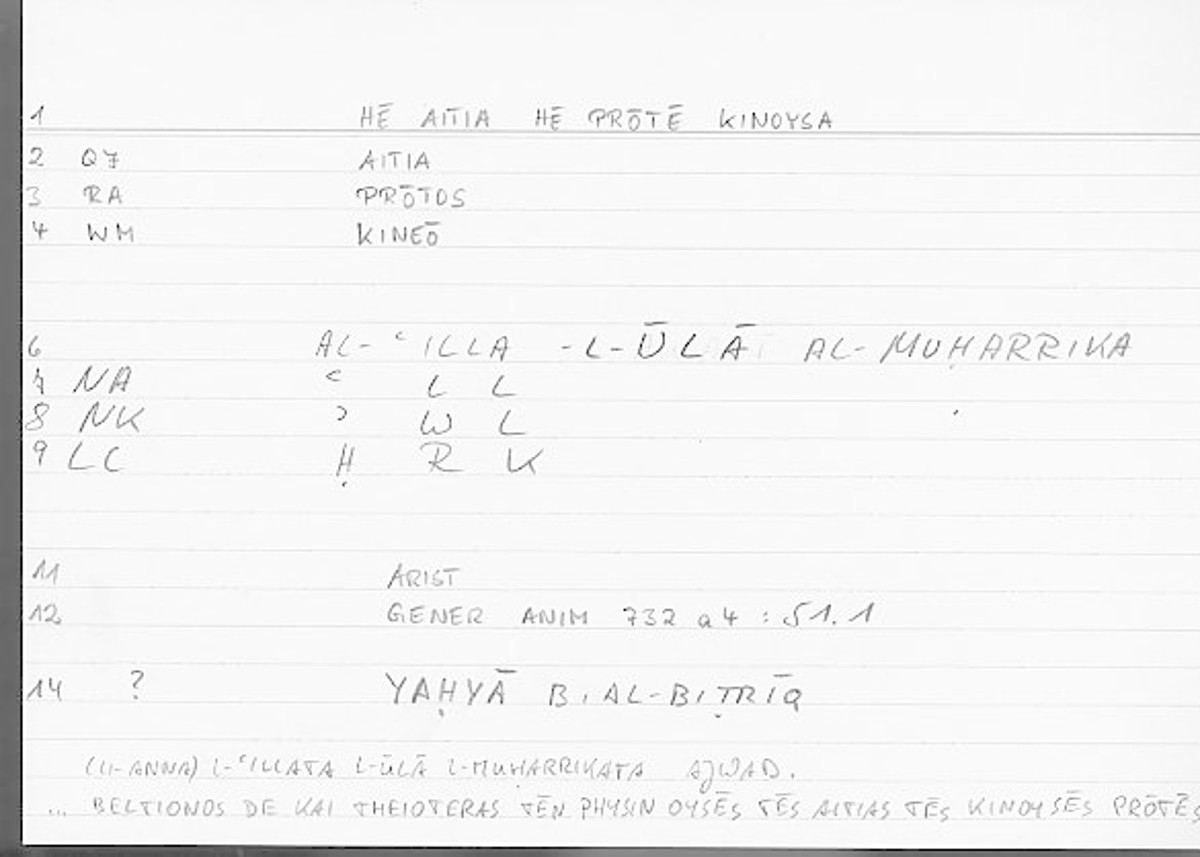 1 HĒ AITIA HĒ PRŌTĒ KINOYSA
2 Q7 AITIA
3 RA PRŌTOS
4 WM KINEŌ
6 AL-ʿILLA -L-ŪLĀ AL-MUḤARRIKA
7 NA ʿ L L
8 NK ʾ W L
9 LC Ḥ R K
11 ARIST
12 GENER ANIM 732 a4 : 51.1
14 ? YAḤYĀ B. AL-BIṬRĪQ
(LI-ANNA) L-ʿILLATA L-ŪLĀ L-MUḤARRIKATA AJWAD.
... BELTIONOS DE KAI THEIOTERAS TĒN PHYSIN OYSĒS TĒS AITIAS TĒS KINOYSĒS PRŌTĒS